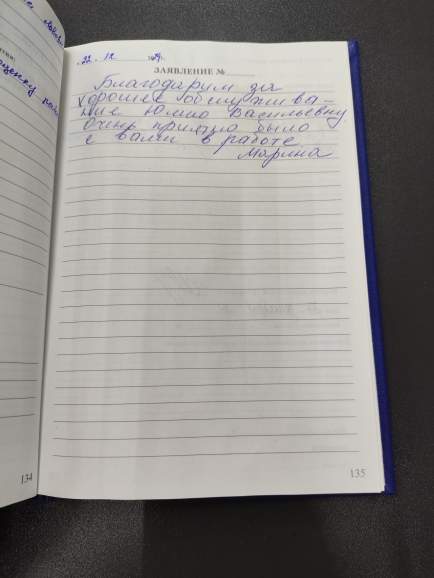 22. 12
ЗАЯВЛЕНИЕ №
Благодарим за
хорошее обслужива-
ние Юлию Васильевну
Очень приятно было
с вами в работе
Марина
134
135